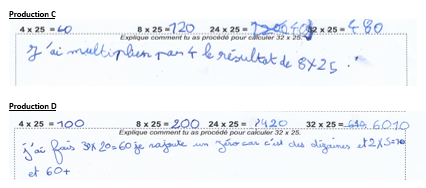 Production C
4 x 25 = 60 8 x 25 = 120 24 x 25 = 32 x 25 = 480
Explique comment tu as procédé pour calculer 32 x 25.
J'ai multiplier par 4 le résultat de 8x25.
Production D
4 x 25 = 100 8 x 25 = 200 24 x 25 = 8420 32 x 25 = 6010
Explique comment tu as procédé pour calculer 32 x 25.
j'ai fais 30x20=60 je rajoute un zéro car c'est des dizaines et 2x5=10
et 60+